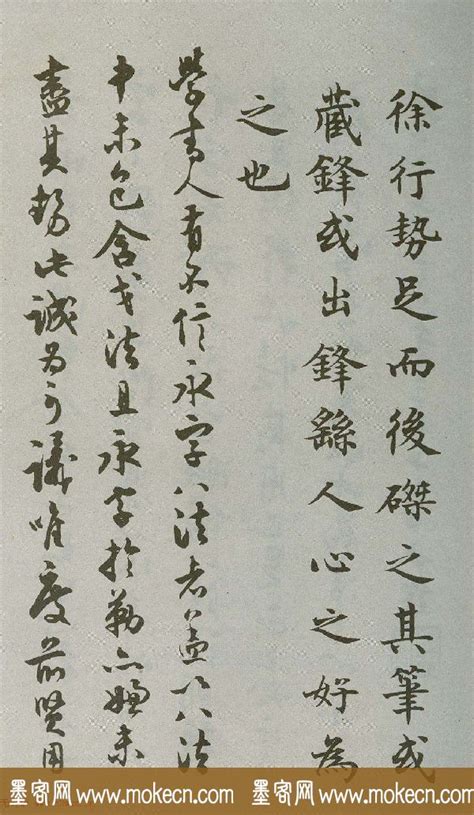 徐行勢足而後磔之其筆或
藏鋒或出鋒繇人心之好為
之也
學書人有不信永字八法者蓋以八法
中未包含戈法且永字於勒亦嫌未
盡其勢此誠為可議唯度前賢用
墨客网 www.mokecn.com 墨客网 www.mokecn.com